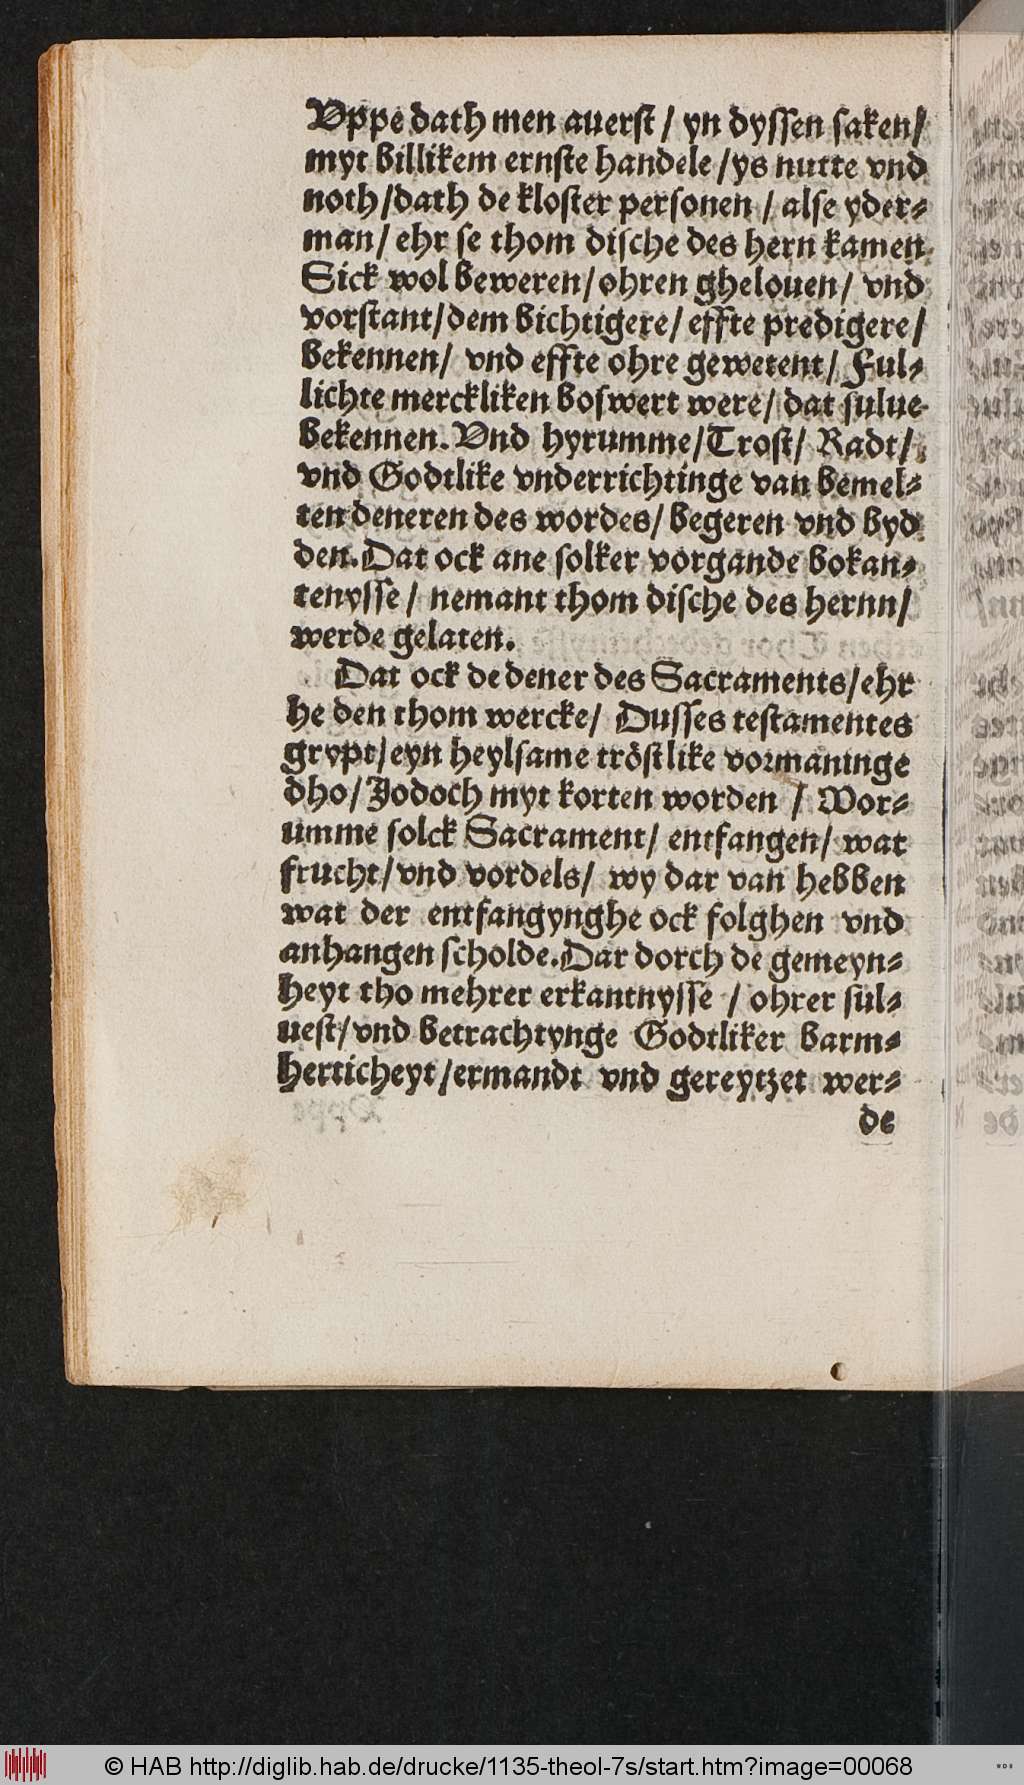 Vppe dath men auerst / yn dyssen saken /
myt billikem ernste handele / ys nutte vnd
noth / dath de kloster personen / alse yder⸗
man / ehr se thom dische des hern kamen
Sick wol beweren / ohren ghelouen / vnd
vorstant / dem bichtigere / effte predigere /
bekennen / vnd effte ohre gewetent / Ful⸗
lichte merckliken boswert were / dat sulue
bekennen. Vnd hyrumme / Trost / Radt /
vnd Godtlike vnderrichtinge van bemel⸗
ten deneren des wordes / begeren vnd byd
den. Dat ock ane solker vorgande bokan⸗
tenysse / nemant thom dische des hernn /
werde gelaten.
Dat ock de dener des Sacraments / ehr
he den thom wercke / Dusses testamentes
grypt / eyn heylsame tröstlike vormaninge
dho / Jodoch myt korten worden / Wor⸗
umme solck Sacrament / entfangen / wat
frucht / vnd vordels / wy dar van hebben
wat der entfangynghe ock folghen vnd
anhangen scholde. Dar dorch de gemeyn⸗
heyt tho mehrer erkantnysse / ohrer sul⸗
uest / vnd betrachtynge Godtliker barm⸗
herticheyt / ermandt vnd gereytzet wer⸗
de
© HAB http://diglib.hab.de/drucke/1135-theol-7s/start.htm?image=00068